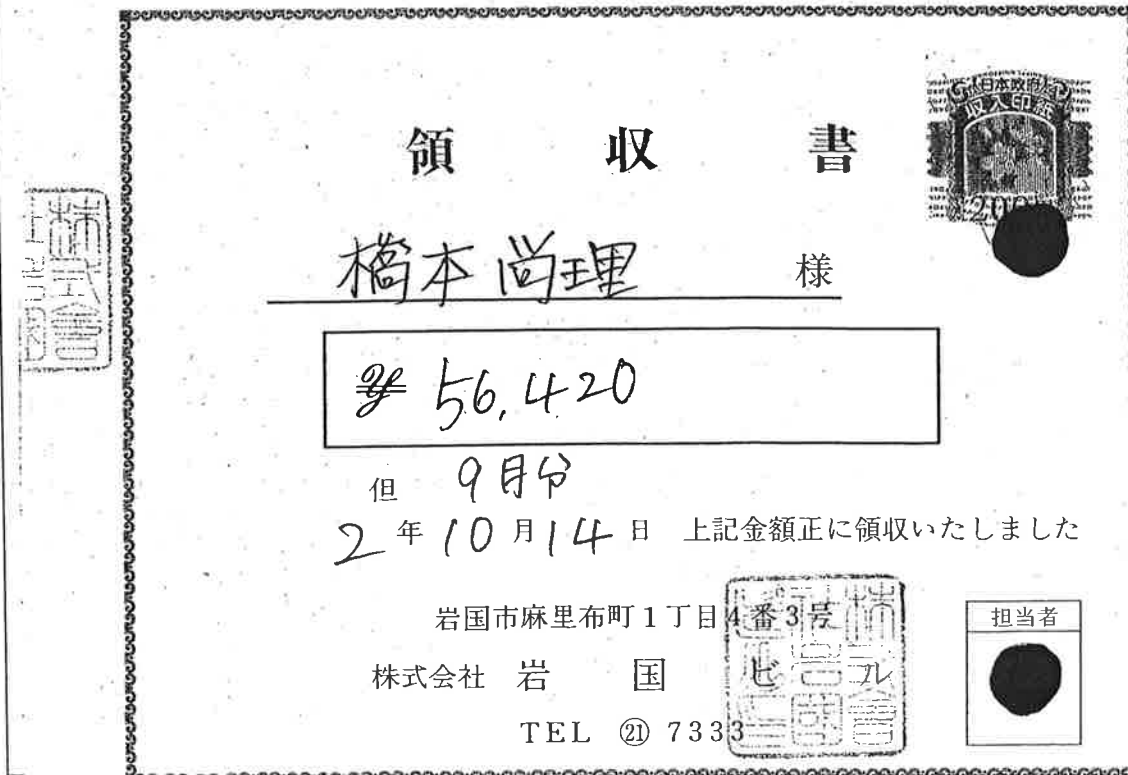 領収書
日本政府
収入印紙
200
橋本尚理 様
¥ 56,420
但 9月分
2年10月14日 上記金額正に領収いたしました
岩国市麻里布町1丁目4番3号
株式会社 岩国ビル
TEL ㉑ 7333
担当者
株式會